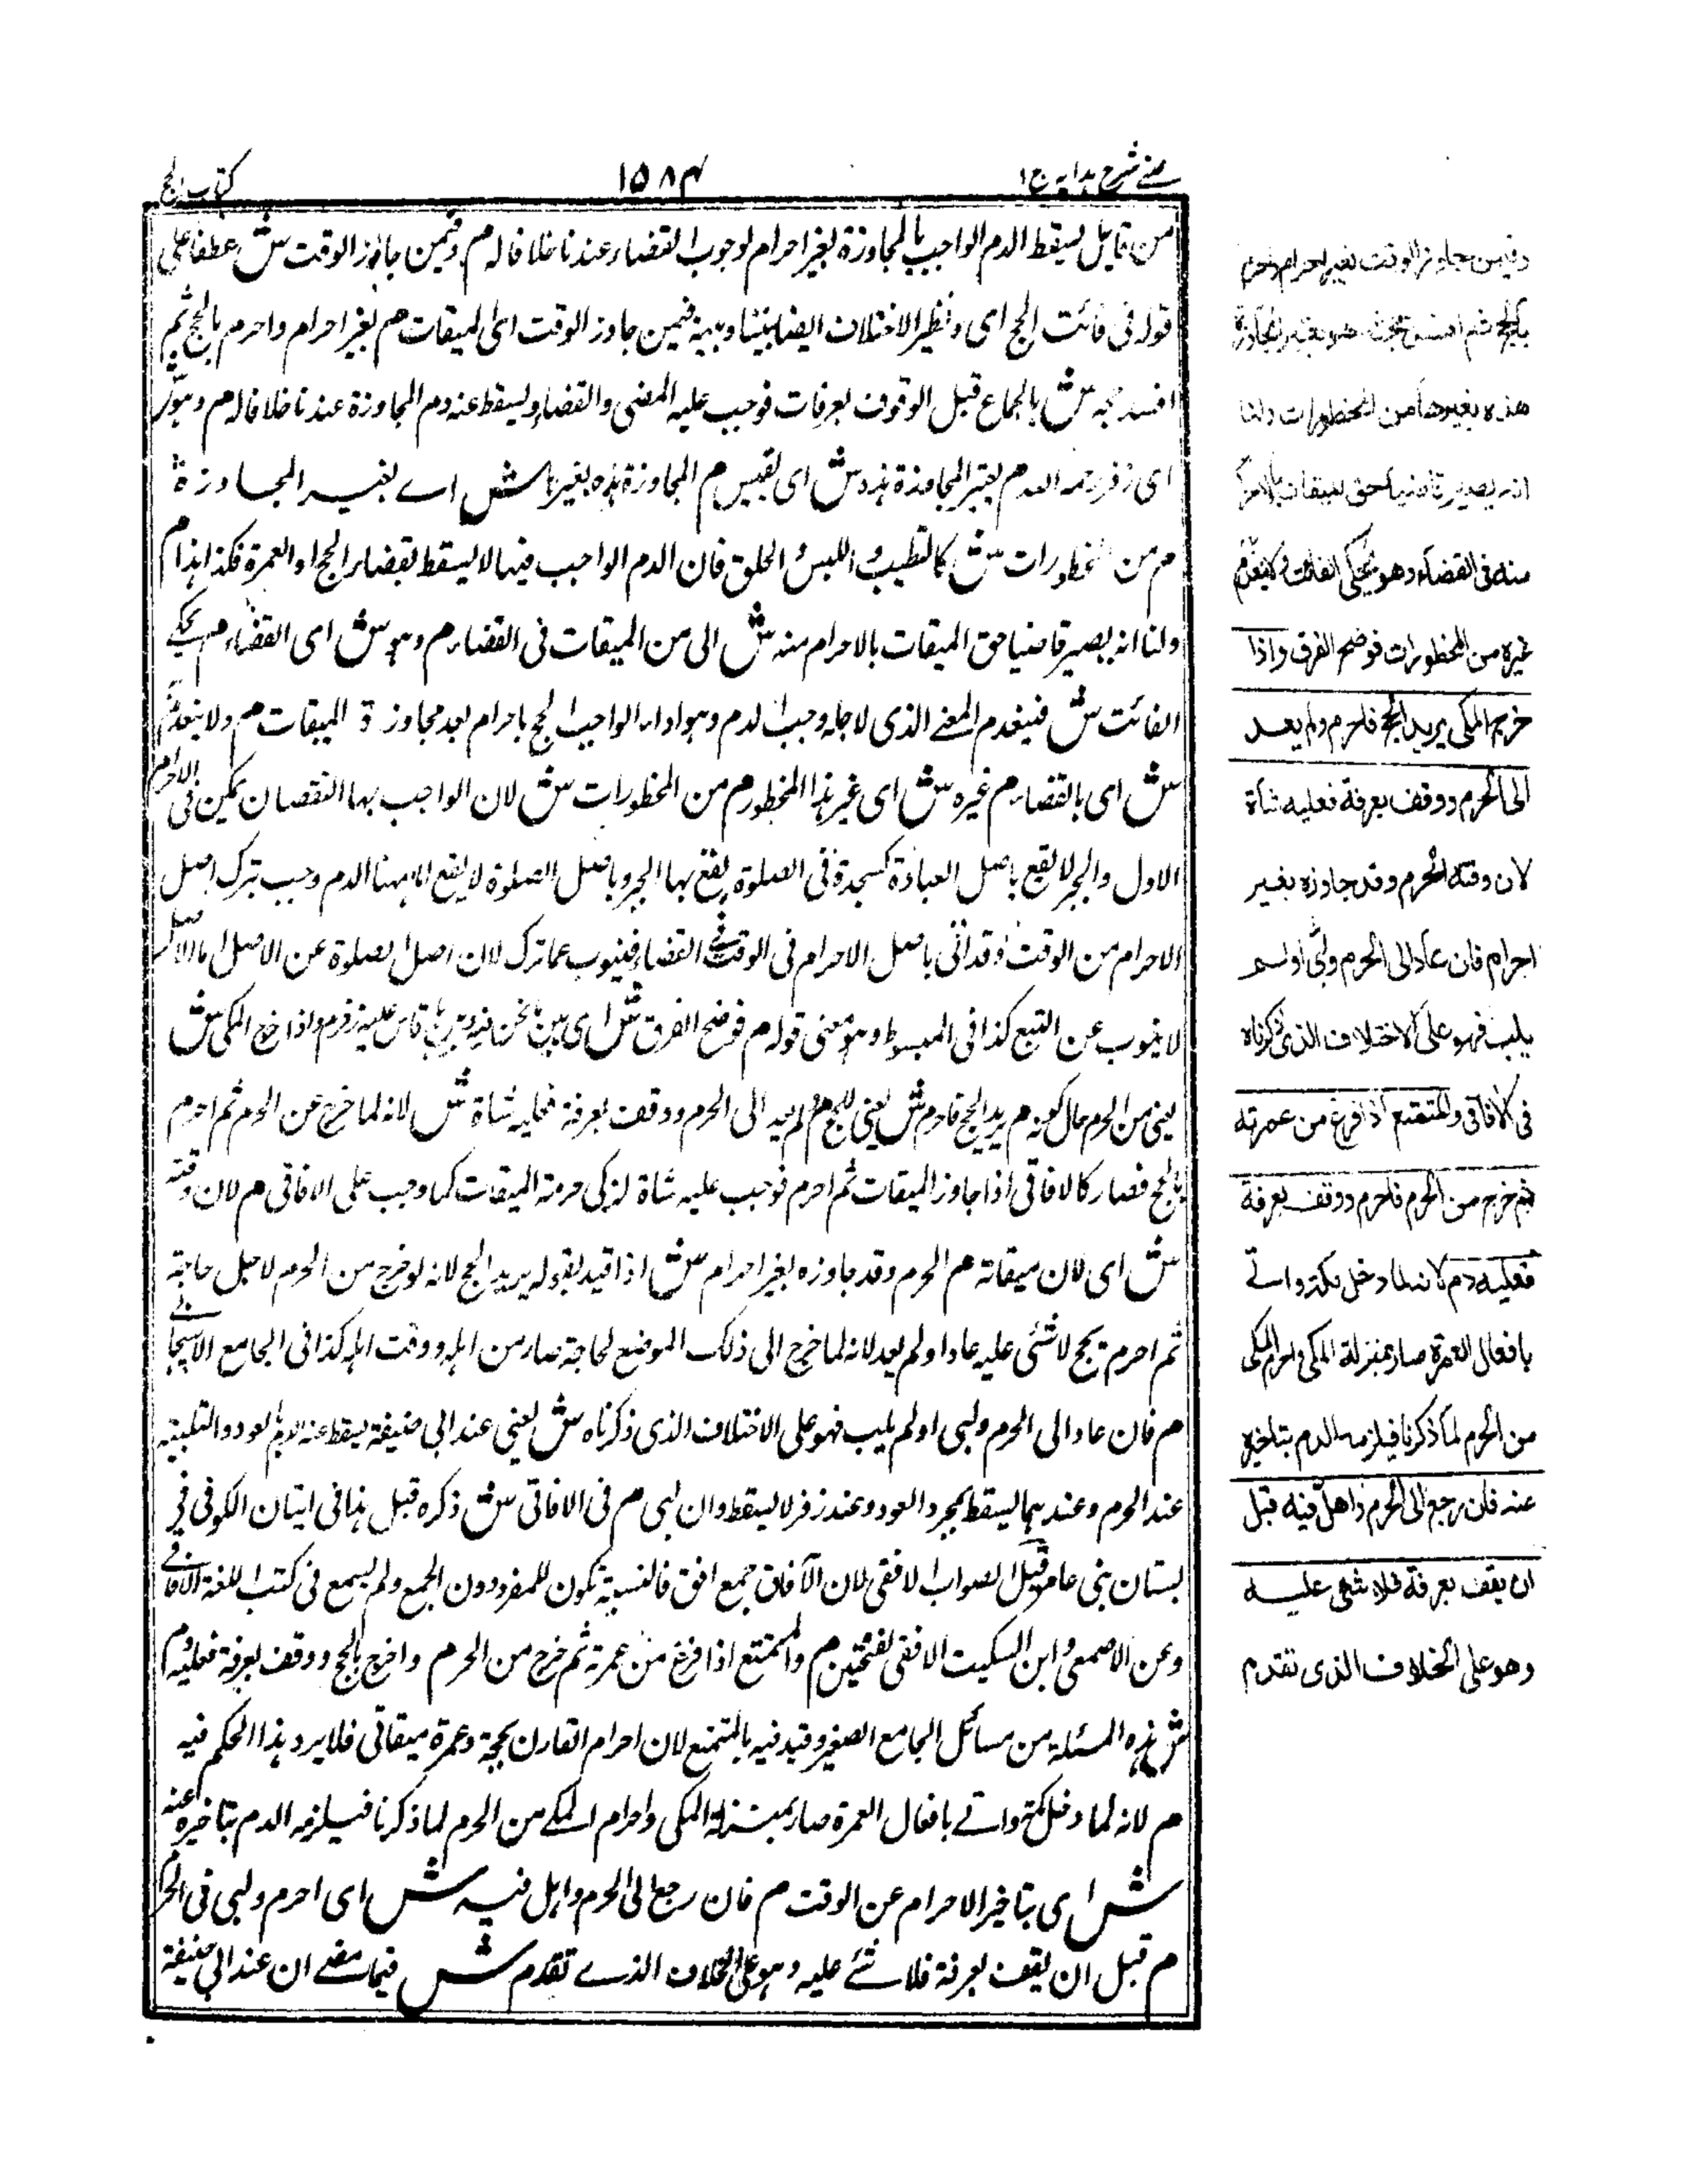 عينى شرح هدايه ج ١
١٥٨٤
كتاب الحج
من قابل يسقط الدم الواجب بالمجاوزة بغير احرام لوجوب القضاء عندنا خلافا له م وفيمن جاوز الوقت ش عطفا على
قوله فى فائت الحج اى ونظير الاختلاف ايضا بيننا وبينه فيمن جاوز الوقت اى الميقات م بغير احرام واحرم بالحج ثم
افسد حجه ش بالجماع قبل الوقوف بعرفات فوجب عليه المضى والقضاء ويسقط عنه دم المجاوزة عندنا خلافا له م وهو ش
اى زفر رحمه الله م يعتبر المجاوزة هذه ش اى يقيس م المجاوزة هذه بغيرها ش اے بغير المجاوزة
م من المحظورات ش كالتطيب واللبس والحلق فان الدم الواجب فيها لا يسقط بقضاء الحج او العمرة فكذا هذا م
ولنا انه يصير قاضيا حق الميقات بالاحرام منه ش اى من الميقات فى القضاء م وهو ش اى القضاء م يحكے
الفائت ش فينعدم المعنے الذى لاجله وجب الدم وهو اداء الواجب الحج باحرام بعد مجاوزة الميقات م ولا ينعدم
ش اى بالقضاء م غيره ش اى غير هذا المحظور م من المحظورات ش لان الواجب بها النقصان تمكن فى الاحرام
الاول والجبر لا يقع باصل العبادة كسجدة فى الصلوة يقع بها الجبر وباصل الصلوة لا يقع اما ههنا الدم وجب بترك اصل
الاحرام من الوقت وقد اتى باصل الاحرام فى الوقت فے القضاء فينوب عما ترك لان اصل الصلوة عن الاصل اما الاصل
لا ينوب عن التبع كذا فى المبسوط وهو معنى قوله م فوضح الفرق ش اى بين ما نحن فيه وبين ما قاس عليه زفر م واذا خرج المكى ش
يعنى من الحرم حال كونه م يريد الحج فاحرم ش يعنى للحج م ولم يعد الى الحرم ووقف بعرفة فعليه شاة ش لانه لما خرج عن الحرم ثم احرم
بالحج فصار كالافاقى اذا جاوز الميقات ثم احرم فوجب عليه شاة لترك حرمة الميقات كما وجب على الافاقى م لان وقته
ش اى لان ميقاته م الحرم وقد جاوزه بغير احرام ش اذا قيد بقوله يريد الحج لانه لو خرج من الحرم لاجل حاجة
ثم احرم بحج لا شئى عليه عاد او لم يعد لانه لما خرج الى ذلك الموضع لحاجة صار من اهله ووقت اهله كذا فى الجامع الاسبيجابے
م فان عاد الى الحرم ولبى او لم يلب فهو على الاختلاف الذى ذكرناه ش يعنى عند ابى حنيفة يسقط عنه الدم بالعود والتلبية
عند الحرم وعندهما يسقط بمجرد العود وعند زفر لا يسقط وان لبى م فى الافاقى ش ذكره قبل هذا فى اتيان الكوفى فى
بستان بنى عامر وقيل الصواب الافقى لان الآفاق جمع افق فالنسبة تكون للمفرد دون الجمع ولم يسمع فى كتب اللغة الافاقے
وعن الاصمعى وابن السكيت الافقى بفتحتين م والمتمتع اذا فرغ من عمرته ثم خرج من الحرم واحرم بالحج ووقف بعرفة فعليه دم
ش هذه المسئلة من مسائل الجامع الصغير وقيد فيه بالمتمتع لان احرام القارن بحجة وعمرة ميقاتى فلا يرد هذا الحكم فيه
م لانه لما دخل مكة واتے بافعال العمرة صار بمنزلة المكى واحرام المكے من الحرم لما ذكرنا فيلزمه الدم بتاخيره عنه
ش اى بتاخير الاحرام عن الوقت م فان رجع الى الحرم واهل فيه ش اى احرم ولبى فى الحرم
م قبل ان يقف بعرفة فلا شئے عليه وهو على الخلاف الذے تقدم ش فيما مضے ان عند ابى حنيفة
وفيمن جاوز الوقت بغير احرام واحرم
بالحج ثم افسد حجته هو يعتبر المجاوزة
هذه بغيرها من المحظورات ولنا
انه يصير قاضيا حق الميقات بالاحرام
منه فى القضاء وهو يحكى الفائت ولا ينعدم
غيره من المحظورات فوضح الفرق واذا
خرج المكى يريد الحج فاحرم ولم يعد
الى الحرم ووقف بعرفة فعليه شاة
لان وقته الحرم وقد جاوزه بغير
احرام فان عاد الى الحرم ولبى او لم
يلب فهو على الاختلاف الذى ذكرناه
فى الافاقى والمتمتع اذا فرغ من عمرته
ثم خرج من الحرم فاحرم ووقف بعرفة
فعليه دم لانه لما دخل مكة واتى
بافعال العمرة صار بمنزلة المكى واحرام المكى
من الحرم لما ذكرنا فيلزمه الدم بتاخيره
عنه فان رجع الى الحرم واهل فيه قبل
ان يقف بعرفة فلا شئ عليه
وهو على الخلاف الذى تقدم